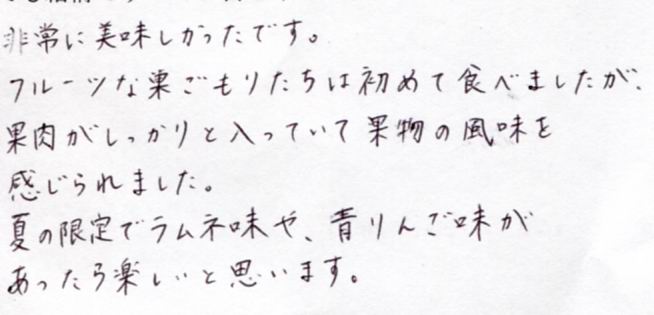 非常に美味しかったです。
フルーツな巣ごもりたちは初めて食べましたが、
果肉がしっかりと入っていて果物の風味を
感じられました。
夏の限定でラムネ味や、青りんご味が
あったら楽しいと思います。